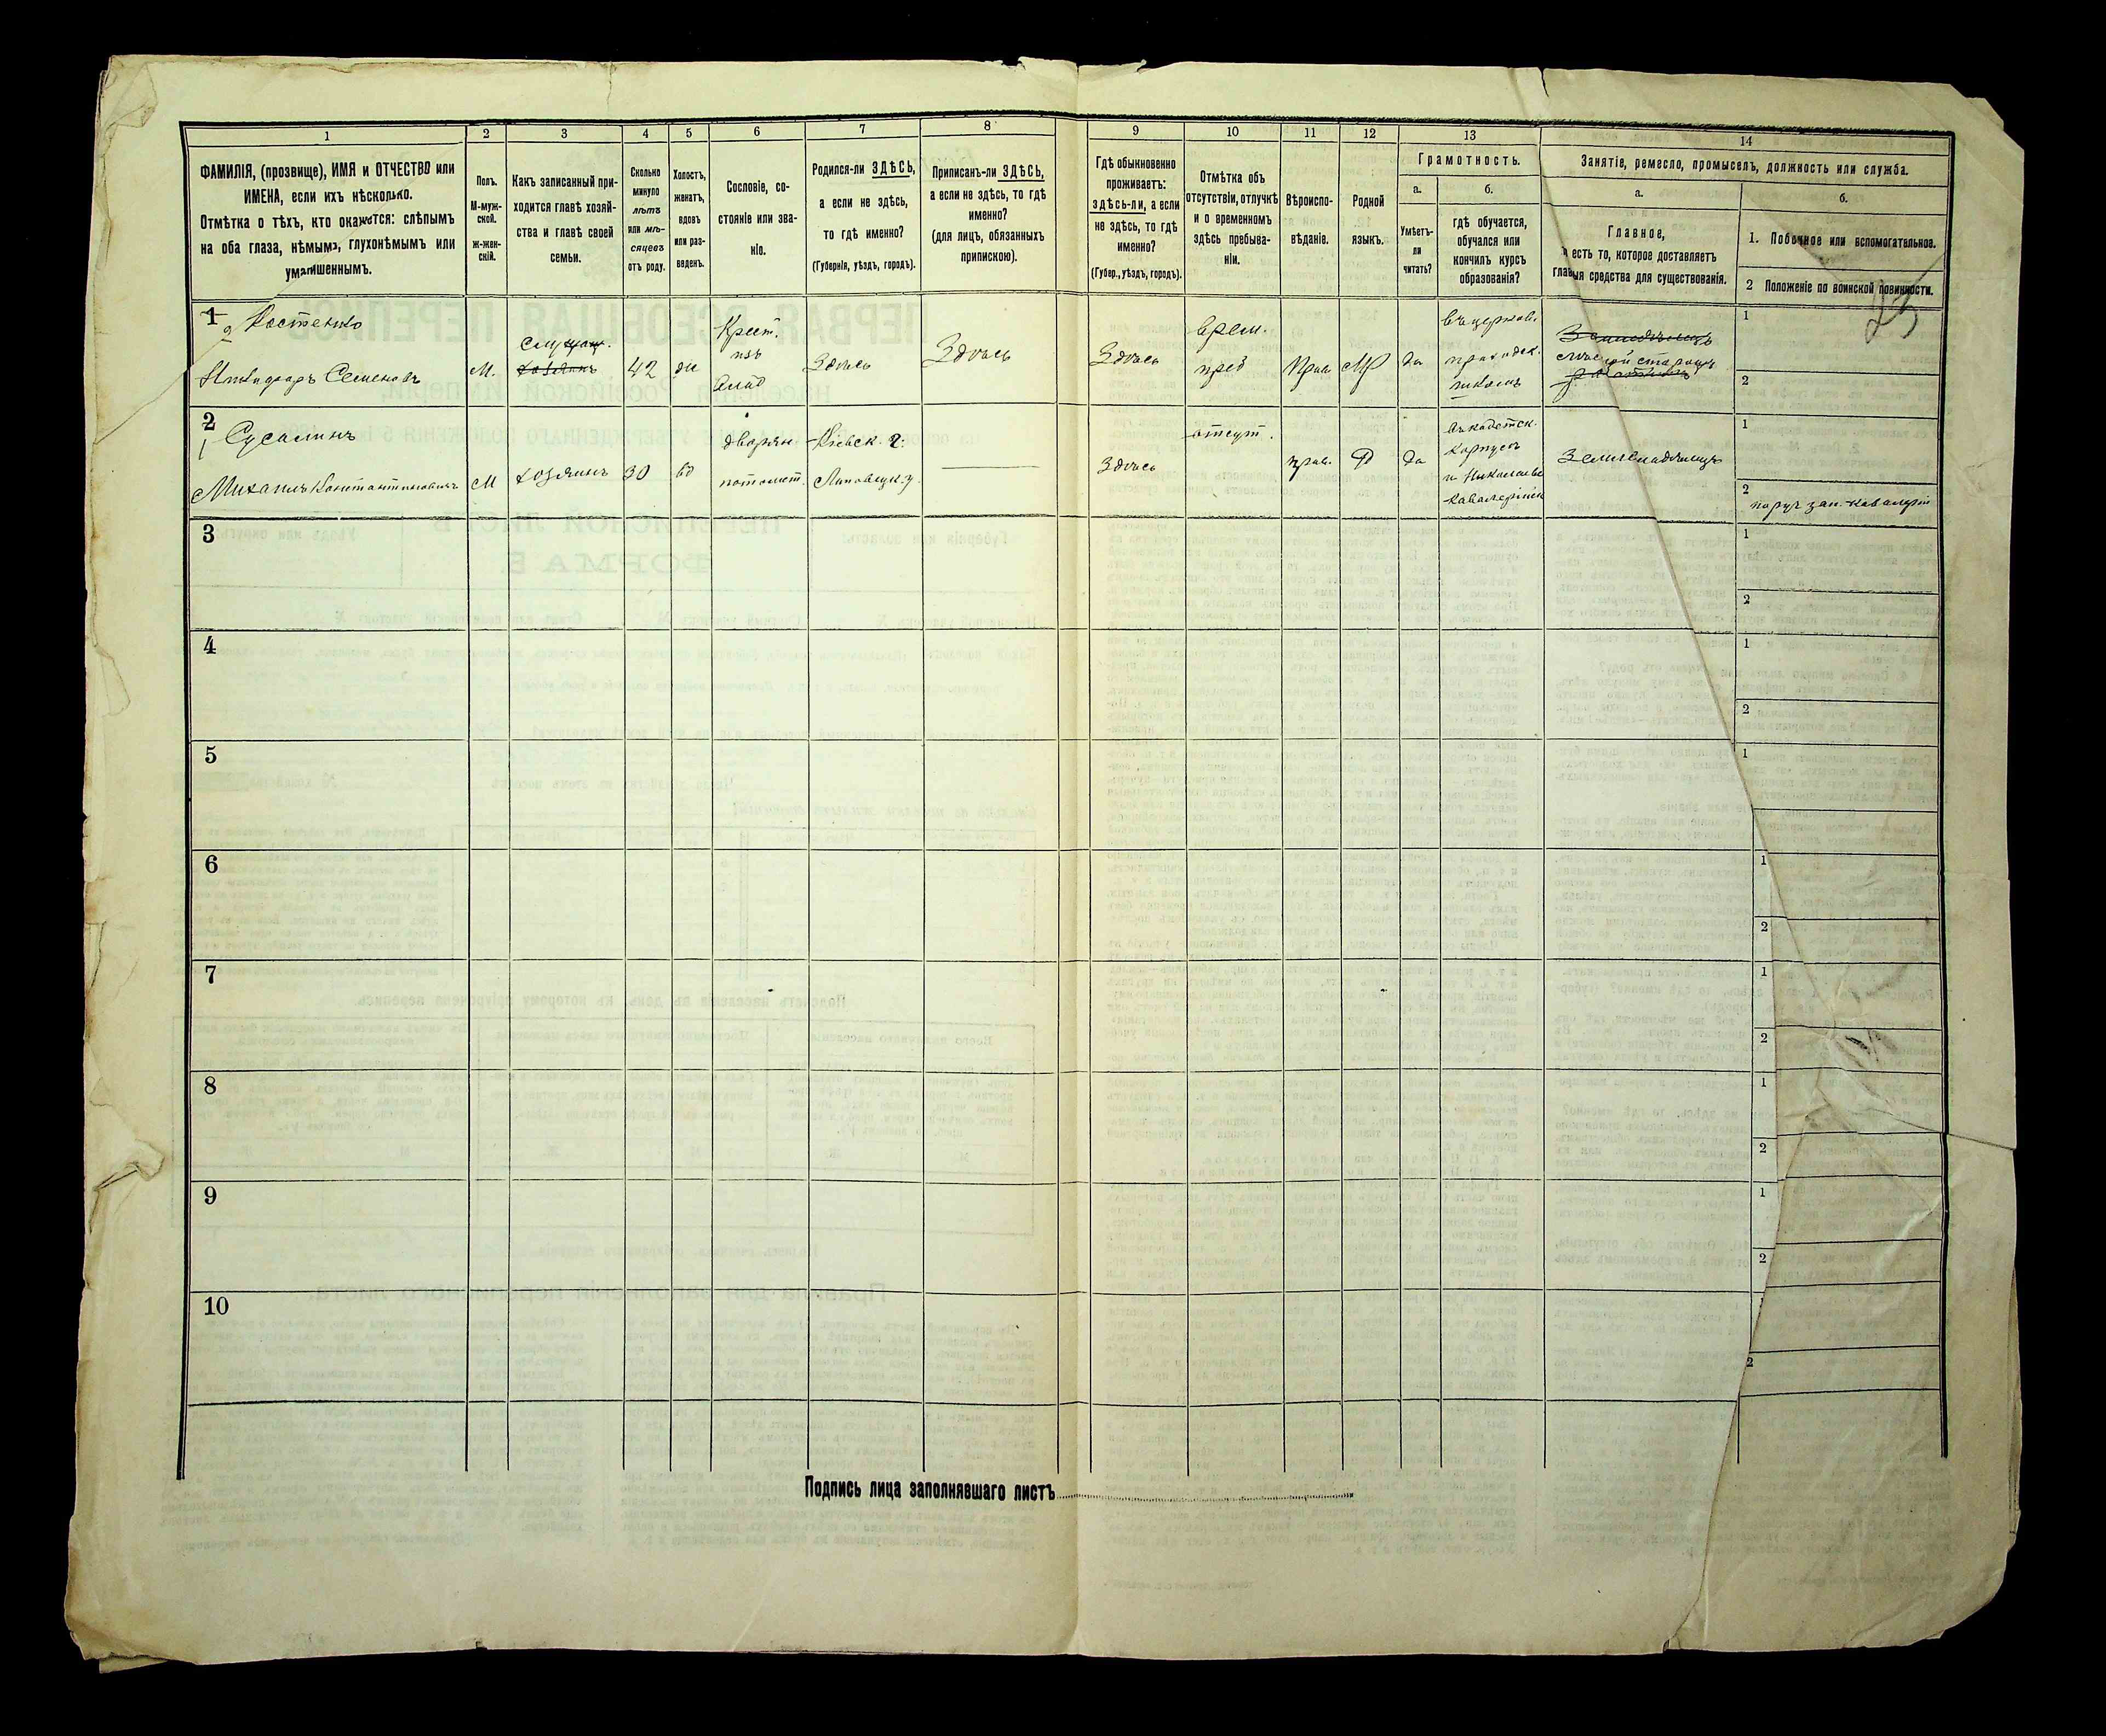 1
2
3
4
5
6
7
8
9
10
11
12
13
14
ФАМИЛІЯ, (прозвище), ИМЯ и ОТЧЕСТВО или
ИМЕНА, если ихъ нѣсколько.
Отмѣтка о тѣхъ, кто окажется: слѣпымъ
на оба глаза, нѣмымъ, глухонѣмымъ или
умалишеннымъ.
Полъ.
М-муж-
ской.
ж-жен-
скій.
Какъ записанный при-
ходится главѣ хозяй-
ства и главѣ своей
семьи.
Сколько
минуло
лѣтъ
или мѣ-
сяцевъ
отъ роду.
Холостъ,
женатъ,
вдовъ
или раз-
веденъ.
Сословіе, со-
стояніе или зва-
ніе.
Родился-ли ЗДѢСЬ,
а если не здѣсь,
то гдѣ именно?
(Губернія, уѣздъ, городъ).
Приписанъ-ли ЗДѢСЬ,
а если не здѣсь, то гдѣ
именно?
(для лицъ, обязанныхъ
припискою).
Гдѣ обыкновенно
проживаетъ:
здѣсь-ли, а если
не здѣсь, то гдѣ
именно?
(Губер., уѣздъ, городъ).
Отмѣтка объ
отсутствіи, отлучкѣ
и о временномъ
здѣсь пребыва-
ніи.
Вѣроиспо-
вѣданіе.
Родной
языкъ.
Грамотность.
а.
б.
Умѣетъ-
ли
читать?
гдѣ обучается,
обучался или
кончилъ курсъ
образованія?
Занятіе, ремесло, промыселъ, должность или служба.
а.
б.
Главное,
есть то, которое доставляетъ
главныя средства для существованія.
1. Побочное или вспомогательное.
2 Положеніе по воинской повинности.
23
1
2 Костенко
Никифоръ Семеновъ
М.
служащ.
хозяинъ
42
же
Крест.
изъ
влад
Здѣсь
Здѣсь
Здѣсь
врем.
преб
Прав
МР
да
въ церковн.
приходск.
школѣ
1
2
2
1 Сусалинъ
Михаилъ Константиновичъ
М
хозяинъ
30
вд
дворян
потомст.
Кіевск. г.
Липовецк. у.
Здѣсь
отсут.
прав.
Р
да
въ кадетск.
корпусѣ
и Николаевс
кавалерійск
Землевладѣлецъ
1
2
поруч зап. кавалеріи
3
1
2
4
1
2
5
1
6
1
2
7
1
2
8
1
2
9
1
2
10
2
Подпись лица заполнявшаго листъ